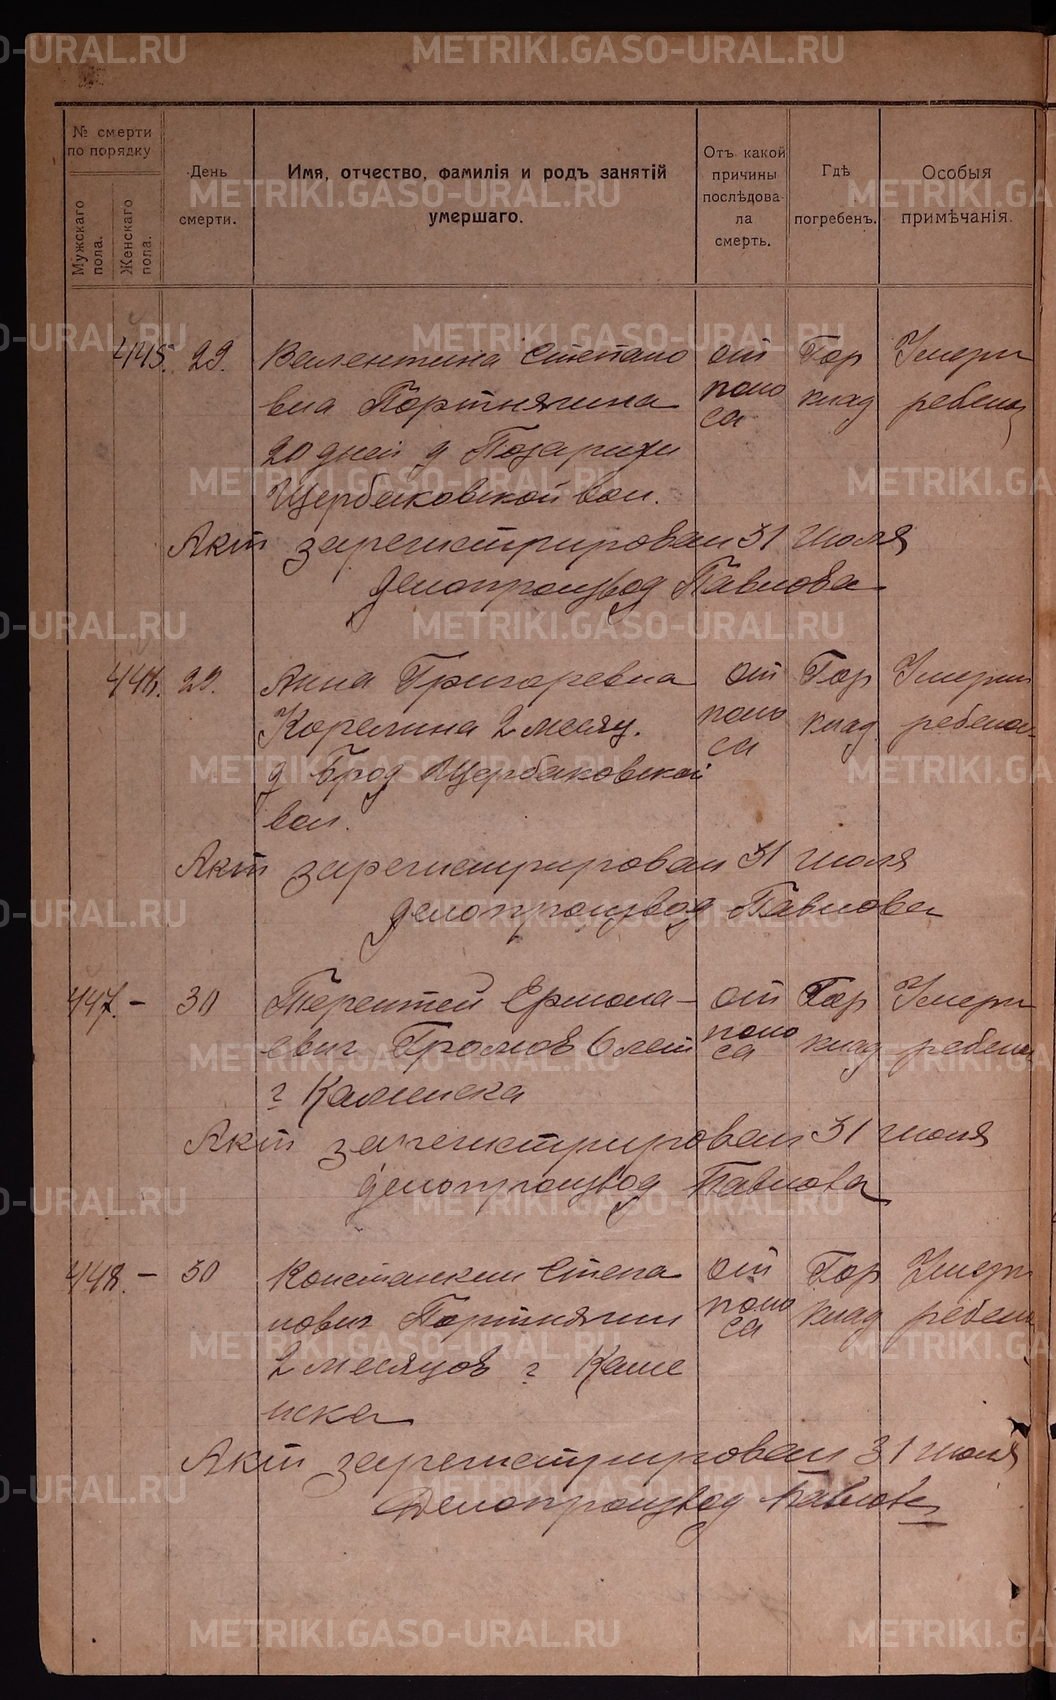 № смерти по порядку
Мужскаго пола.
Женскаго пола.
День смерти.
Имя, отчество, фамилія и родъ занятій умершаго.
Отъ какой причины послѣдовала смерть.
Гдѣ погребенъ.
Особыя примѣчанія.
445. 29. Валентина Степано от Гор Умерш
вна Портнягина поно клад ребенок
са
20 дней д Позарихи
Щербаковской вол.
Акт зарегистрирован 31 июля
Делопроизвод Павлова
446. 29. Анна Григоревна от Гор Умерш
Корелина 2 месяц. поно клад ребенок
са
д Брод Щербаковской
вол.
Акт зарегистрирован 31 июля
делопроизвод Павлова
447. – 30 Терентей Ермола– от Гор Умерш
евич Громов 6 лет поно клад ребенок
са
г Каменска
Акт зарегистрирован 31 июля
делопроизвод Павлова
448. – 30 Константин Степа от Гор Умерш
нович Портнягин поно клад ребенок
са
2 месяцов г Каме
нска
Акт зарегистрирован 31 июля
Делопроизвод Павлова
METRIKI.GASO-URAL.RU